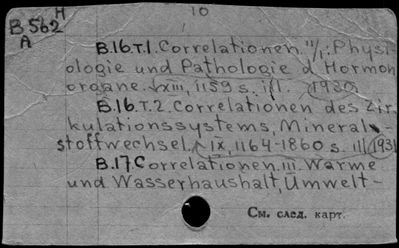 H 10
B 562
A
B.16.T.1. Correlationen II/1: Physi-
ologie und Pathologie d. Hormon
organe. XIII, 1159 s. ill. (1930)
B.16.T.2. Correlationen des Zir-
kulationssystems, Mineral-
stoffwechsel. IX, 1164-1860 s. ill (1931
B.17. Correlationen III. Wärme
und Wasserhaushalt, Umwelt-
См. след. карт.